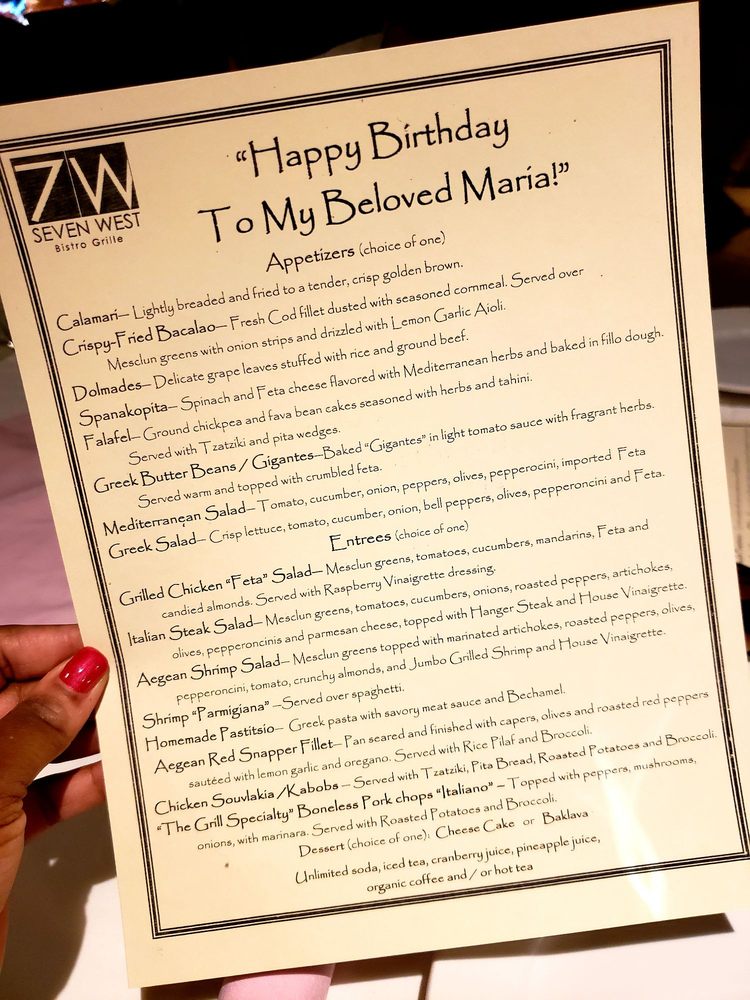 7W
SEVEN WEST
Bistro Grille
“Happy Birthday
To My Beloved Maria!”
Appetizers (choice of one)
Calamari— Lightly breaded and fried to a tender, crisp golden brown.
Crispy-Fried Bacalao— Fresh Cod fillet dusted with seasoned cornmeal. Served over
Mesclun greens with onion strips and drizzled with Lemon Garlic Aioli.
Dolmades— Delicate grape leaves stuffed with rice and ground beef.
Spanakopita— Spinach and Feta cheese flavored with Mediterranean herbs and baked in fillo dough.
Falafel— Ground chickpea and fava bean cakes seasoned with herbs and tahini.
Served with Tzatziki and pita wedges.
Greek Butter Beans / Gigantes—Baked “Gigantes” in light tomato sauce with fragrant herbs.
Served warm and topped with crumbled feta.
Mediterranean Salad— Tomato, cucumber, onion, peppers, olives, pepperocini, imported Feta
Greek Salad— Crisp lettuce, tomato, cucumber, onion, bell peppers, olives, pepperoncini and Feta.
Entrees (choice of one)
Grilled Chicken “Feta” Salad— Mesclun greens, tomatoes, cucumbers, mandarins, Feta and
candied almonds. Served with Raspberry Vinaigrette dressing.
Italian Steak Salad— Mesclun greens, tomatoes, cucumbers, onions, roasted peppers, artichokes,
olives, pepperoncinis and parmesan cheese, topped with Hanger Steak and House Vinaigrette.
Aegean Shrimp Salad— Mesclun greens topped with marinated artichokes, roasted peppers, olives,
pepperoncini, tomato, crunchy almonds, and Jumbo Grilled Shrimp and House Vinaigrette.
Shrimp “Parmigiana” —Served over spaghetti.
Homemade Pastitsio— Greek pasta with savory meat sauce and Bechamel.
Aegean Red Snapper Fillet— Pan seared and finished with capers, olives and roasted red peppers
sautéed with lemon garlic and oregano. Served with Rice Pilaf and Broccoli.
Chicken Souvlakia /Kabobs — Served with Tzatziki, Pita Bread, Roasted Potatoes and Broccoli.
“The Grill Specialty” Boneless Pork chops “Italiano” – Topped with peppers, mushrooms,
onions, with marinara. Served with Roasted Potatoes and Broccoli.
Dessert (choice of one): Cheese Cake or Baklava
Unlimited soda, iced tea, cranberry juice, pineapple juice,
organic coffee and / or hot tea